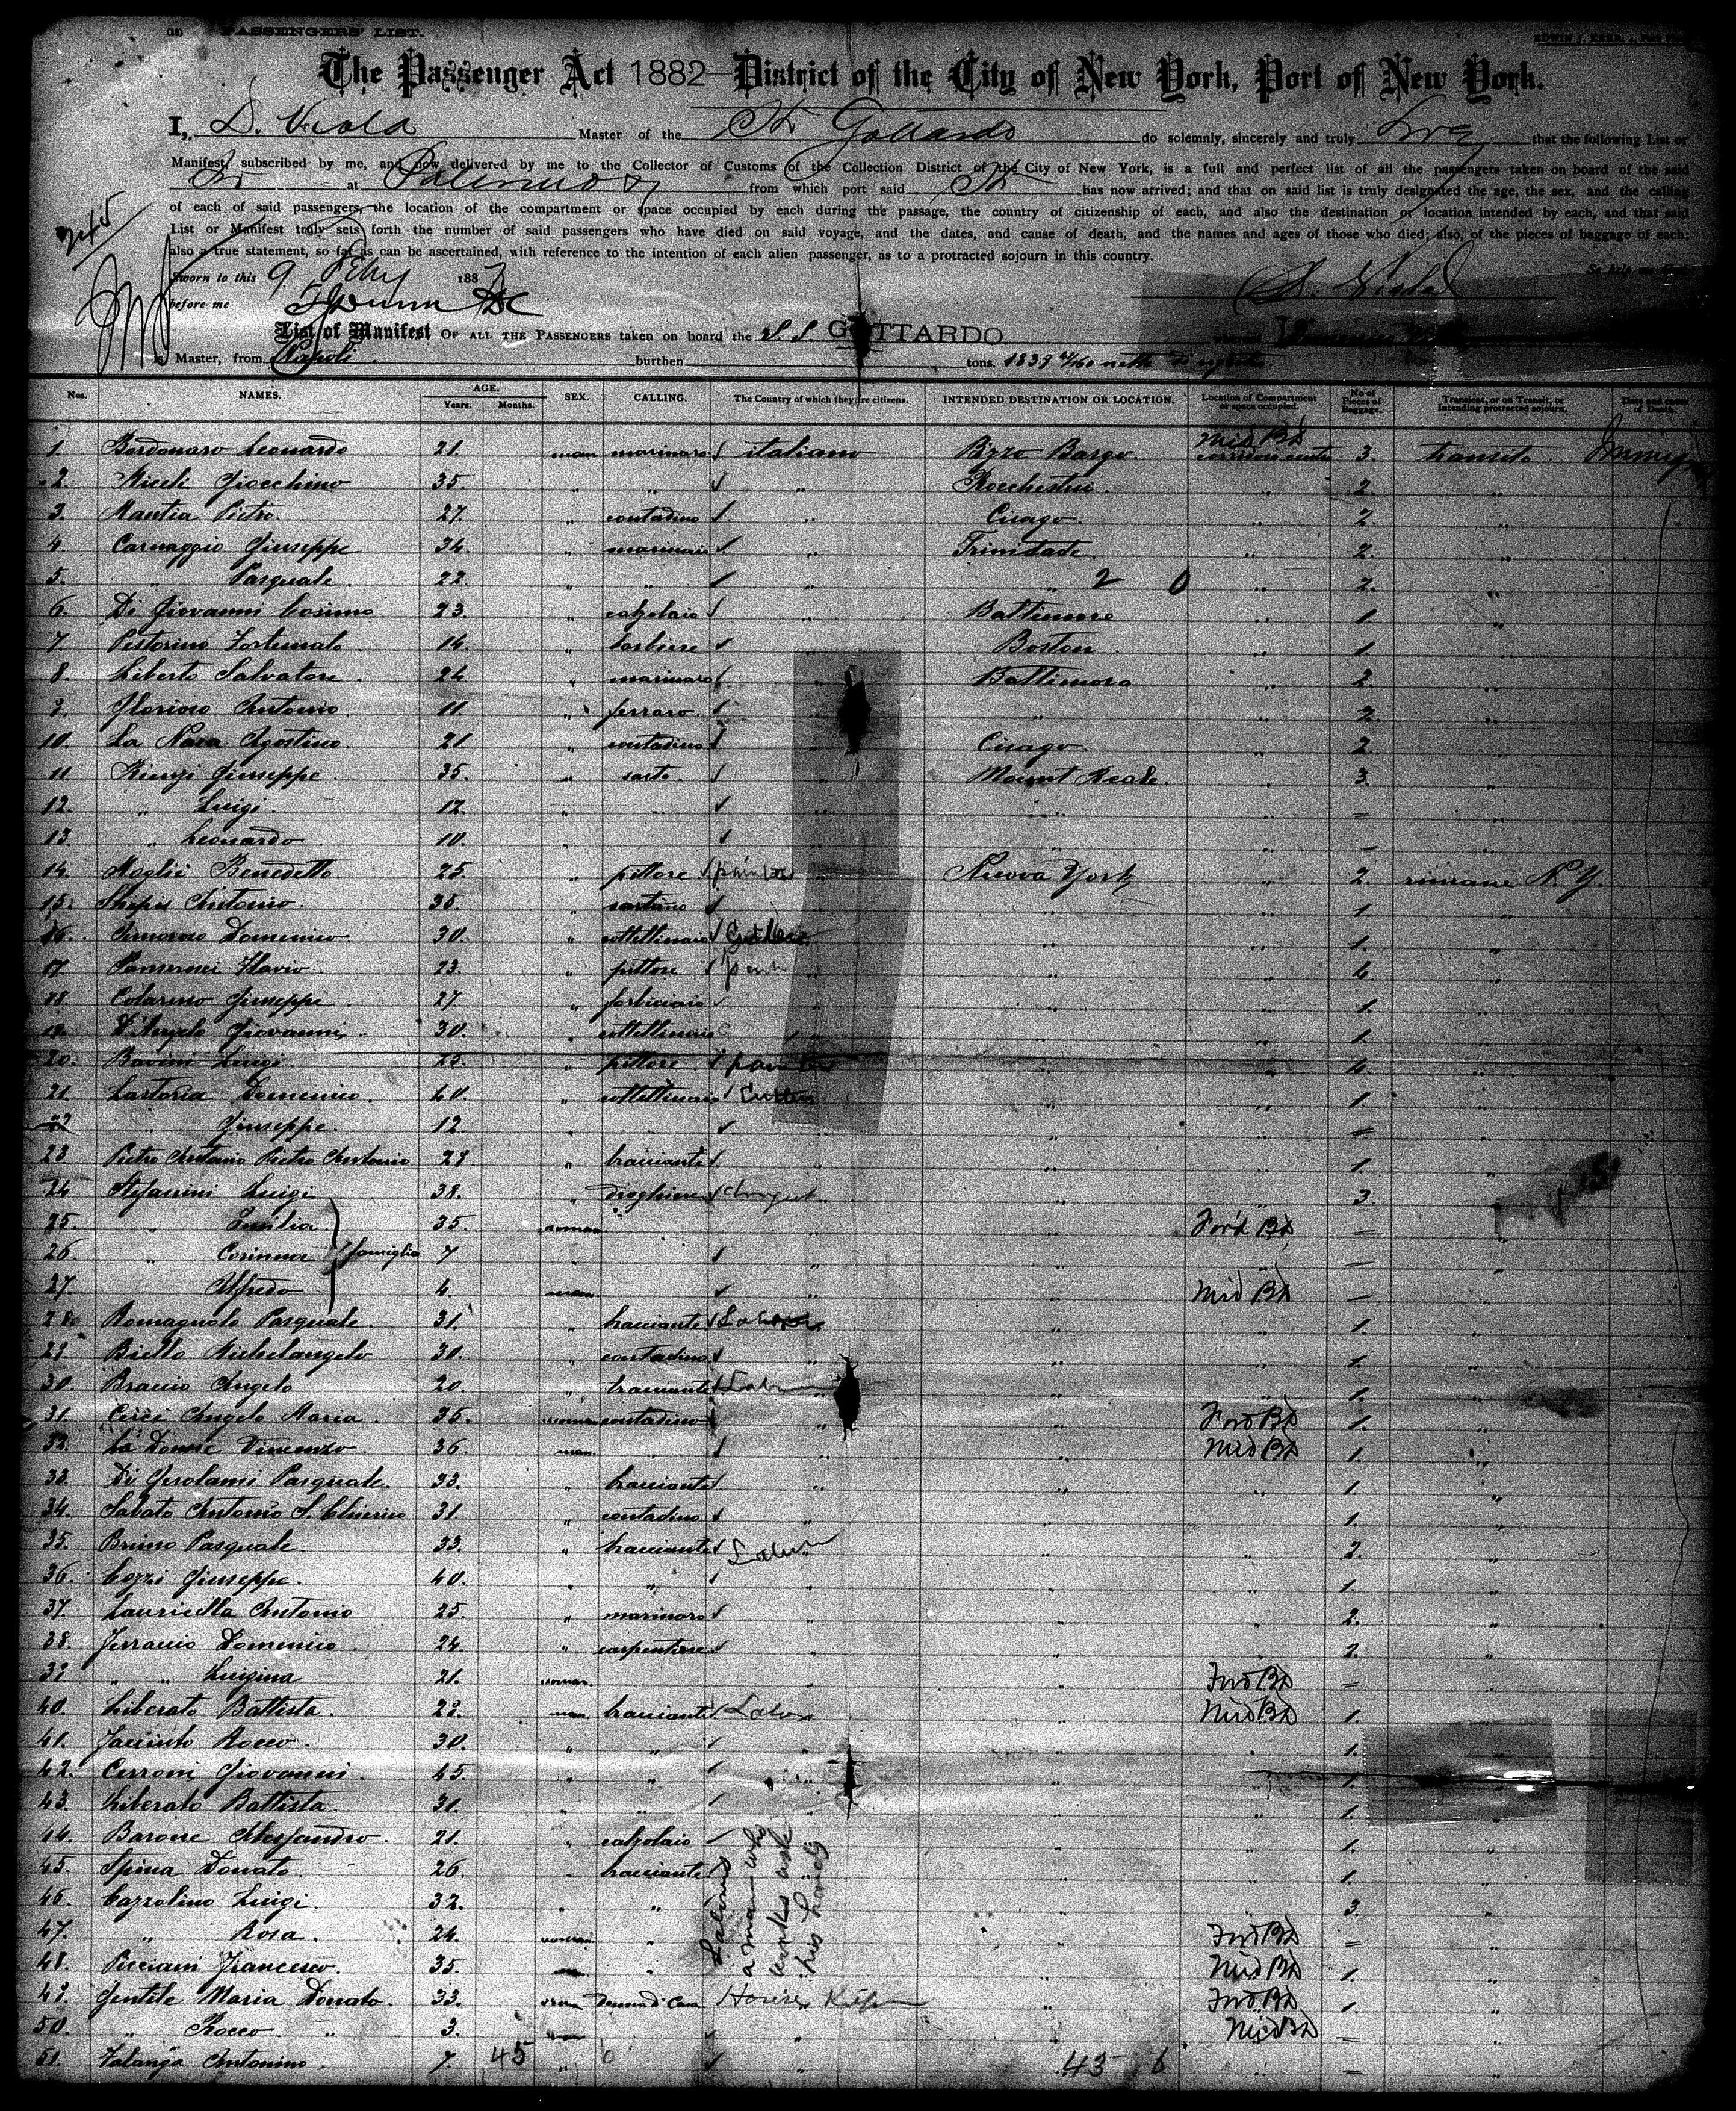 (18) PASSENGERS' LIST.
The Passenger Act 1882 District of the City of New York, Port of New York.
I, D. Viola Master of the Str Gottardo do solemnly, sincerely and truly that the following List or
Manifest, subscribed by me, and now delivered by me to the Collector of Customs of the Collection District of the City of New York, is a full and perfect list of all the passengers taken on board of the said
Str at Palermo from which port said Str has now arrived; and that on said list is truly designated the age, the sex, and the calling
of each of said passengers, the location of the compartment or space occupied by each during the passage, the country of citizenship of each, and also the destination or location intended by each, and that said
List or Manifest truly sets forth the number of said passengers who have died on said voyage, and the dates, and cause of death, and the names and ages of those who died; also, of the pieces of baggage of each;
also a true statement, so far as can be ascertained, with reference to the intention of each alien passenger, as to a protracted sojourn in this country. So help me God.
245
Sworn to this 9 Feby 188
before me
List of Manifest OF ALL THE PASSENGERS taken on board the S. S. GOTTARDO whereof
is Master, from Napoli burthen tons. 1839
Nos. NAMES. AGE. Years. Months. SEX. CALLING. The Country of which they are citizens. INTENDED DESTINATION OR LOCATION. Location of Compartment or space occupied. No of Pieces of Baggage. Transient, or on Transit, or Intending protracted sojourn. Date and cause of Death.
1. Bordonaro Leonardo 21. man marinaro italiano Pizzo Bargo Mid Bd corridoi centr 3. transito
2. Miceli Giocchino 35. " " " Rocchester " 2. "
3. Mantia Pietro. 27. " contadino " Cicago. " 2. "
4. Carnaggio Giuseppe 34. " marinaio " Trinidade. " 2. "
5. " Pasquale. 22. " " " " 2 0 2. "
6. Di Giovanni Cosimo 23. " calzolaio Baltimore 1. "
7. Pistorino Fortunato 14. " barbiere Boston 1. "
8. Liberto Salvatore. 24 " marinaro " Baltimora " 2. "
9. Glorioso Antonio. 11. " ferraro. " " 2. "
10. La Nasa Agostino. 21. " contadino " Cicago. " 2 "
11. Rienzi Giuseppe. 35. " sarto. " Mount Reale. " 3. "
12. " Luigi. 12. " " " = "
13. " Leonardo 10. " " " = "
14. Moglii Benedetto. 25. " pittore painter Nuova York " 2. rimane N.Y.
15. Antonio. 35. " " 1. "
16. Domenico. 30. " coltellinaio Cutler " " 1. "
17. Flavio. 23. " pittore " " 4 "
18. Colarino Giuseppe 27 " forbiciaio " " 1. "
19. D'Angelo Giovanni, 30. " coltellinaio " " 1. "
20. Luigi. 23. " pittore painter " " 4. "
21. Lastoria Domenico. 40. " coltellinaio Cutler " " 1. "
22 " Giuseppe. 12. " " " = "
23 Pietro Antonio Pietro Antonio 29. " bracciante " " 1. "
24 Stefanini Luigi 38. " droghiere " " 3. "
25. " Emilia 35. woman " Ford Bd = "
26. " Corinna famiglia 7 " " " = "
27. Alfredo 4. man " " Mid Bd — "
28. Romagnolo Pasquale. 31. " bracciante Laborer " " 1. "
29. Biello Michelangelo. 30. " contadino " " 1. "
30. Braccio Angelo 20. " bracciante Labr " " 1. "
31. Cerci Angelo Maria. 35. woman contadino " " Ford Bd 1. "
32. La Donne Vincenzo. 36. man. " " " Mid Bd 1. "
33. Di Gerolami Pasquale. 33. " bracciante " " 1. "
34. Sabato Antonio 31. " contadino " " 1. "
35. Bruno Pasquale. 33. " bracciante Labr " " 2. "
36. Cozzi Giuseppe. 40. " " " " 1. "
37. Lauricella Antonio 25. " marinaro " " 2. "
38. Ferraccio Domenico. 24. " carpentiere " " 2. "
39 " " Luigina 21. woman. " " Ford Bd = "
40. Liberato Battista. 22. man bracciante Labor " Mid Bd 1. "
41. Jacinto Rocco. 30. " " " " 1. "
42. Cerroni Giovanni. 45. " " " " 1. "
43. Liberato Battista. 31. " " " " 1. "
44. Barone Alessandro. 21. " calzolaio " " 1. "
45. Spina Donato. 26. " bracciante " " 1. "
46. Cazzolino Luigi. 32. " " " " 3. "
47. " Rosa. 24. woman " " Ford Bd = "
48. Picciani Francesco. 35. " " Mid Bd 1. "
Laborers a man who works with his hands
49. Gentile Maria Donato. 33. woman Donna di Casa House Keeper " Ford Bd 1. "
50. " Rocco " 3. " " Mid Bd = "
51. Falanga Antonino. 7. 45 " " 43 6 " = "